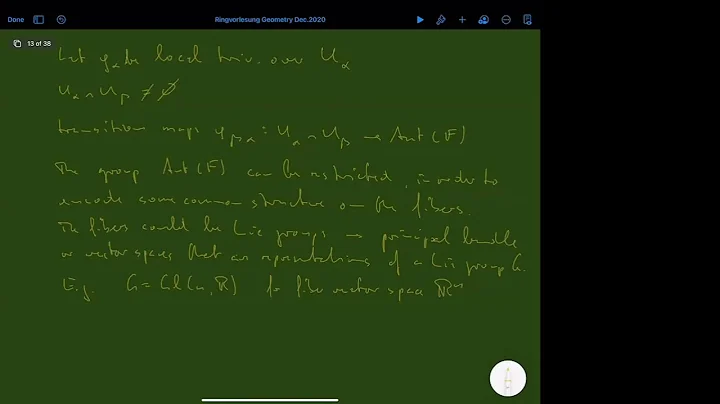 Done
Ringvorlesung Geometry Dec.2020
13 of 38
Let φα be local triv. over Uα
Uα ∩ Uβ ≠ ∅
transition maps φβα : Uα ∩ Uβ → Aut(F)
The group Aut(F) can be restricted, in order to
encode some common structure on the fibers.
The fibers could be Lie groups → principal bundle
or vector spaces that are representations of a Lie group G.
E.g. G = Gl(n, ℝ) for fiber vector space ℝⁿ